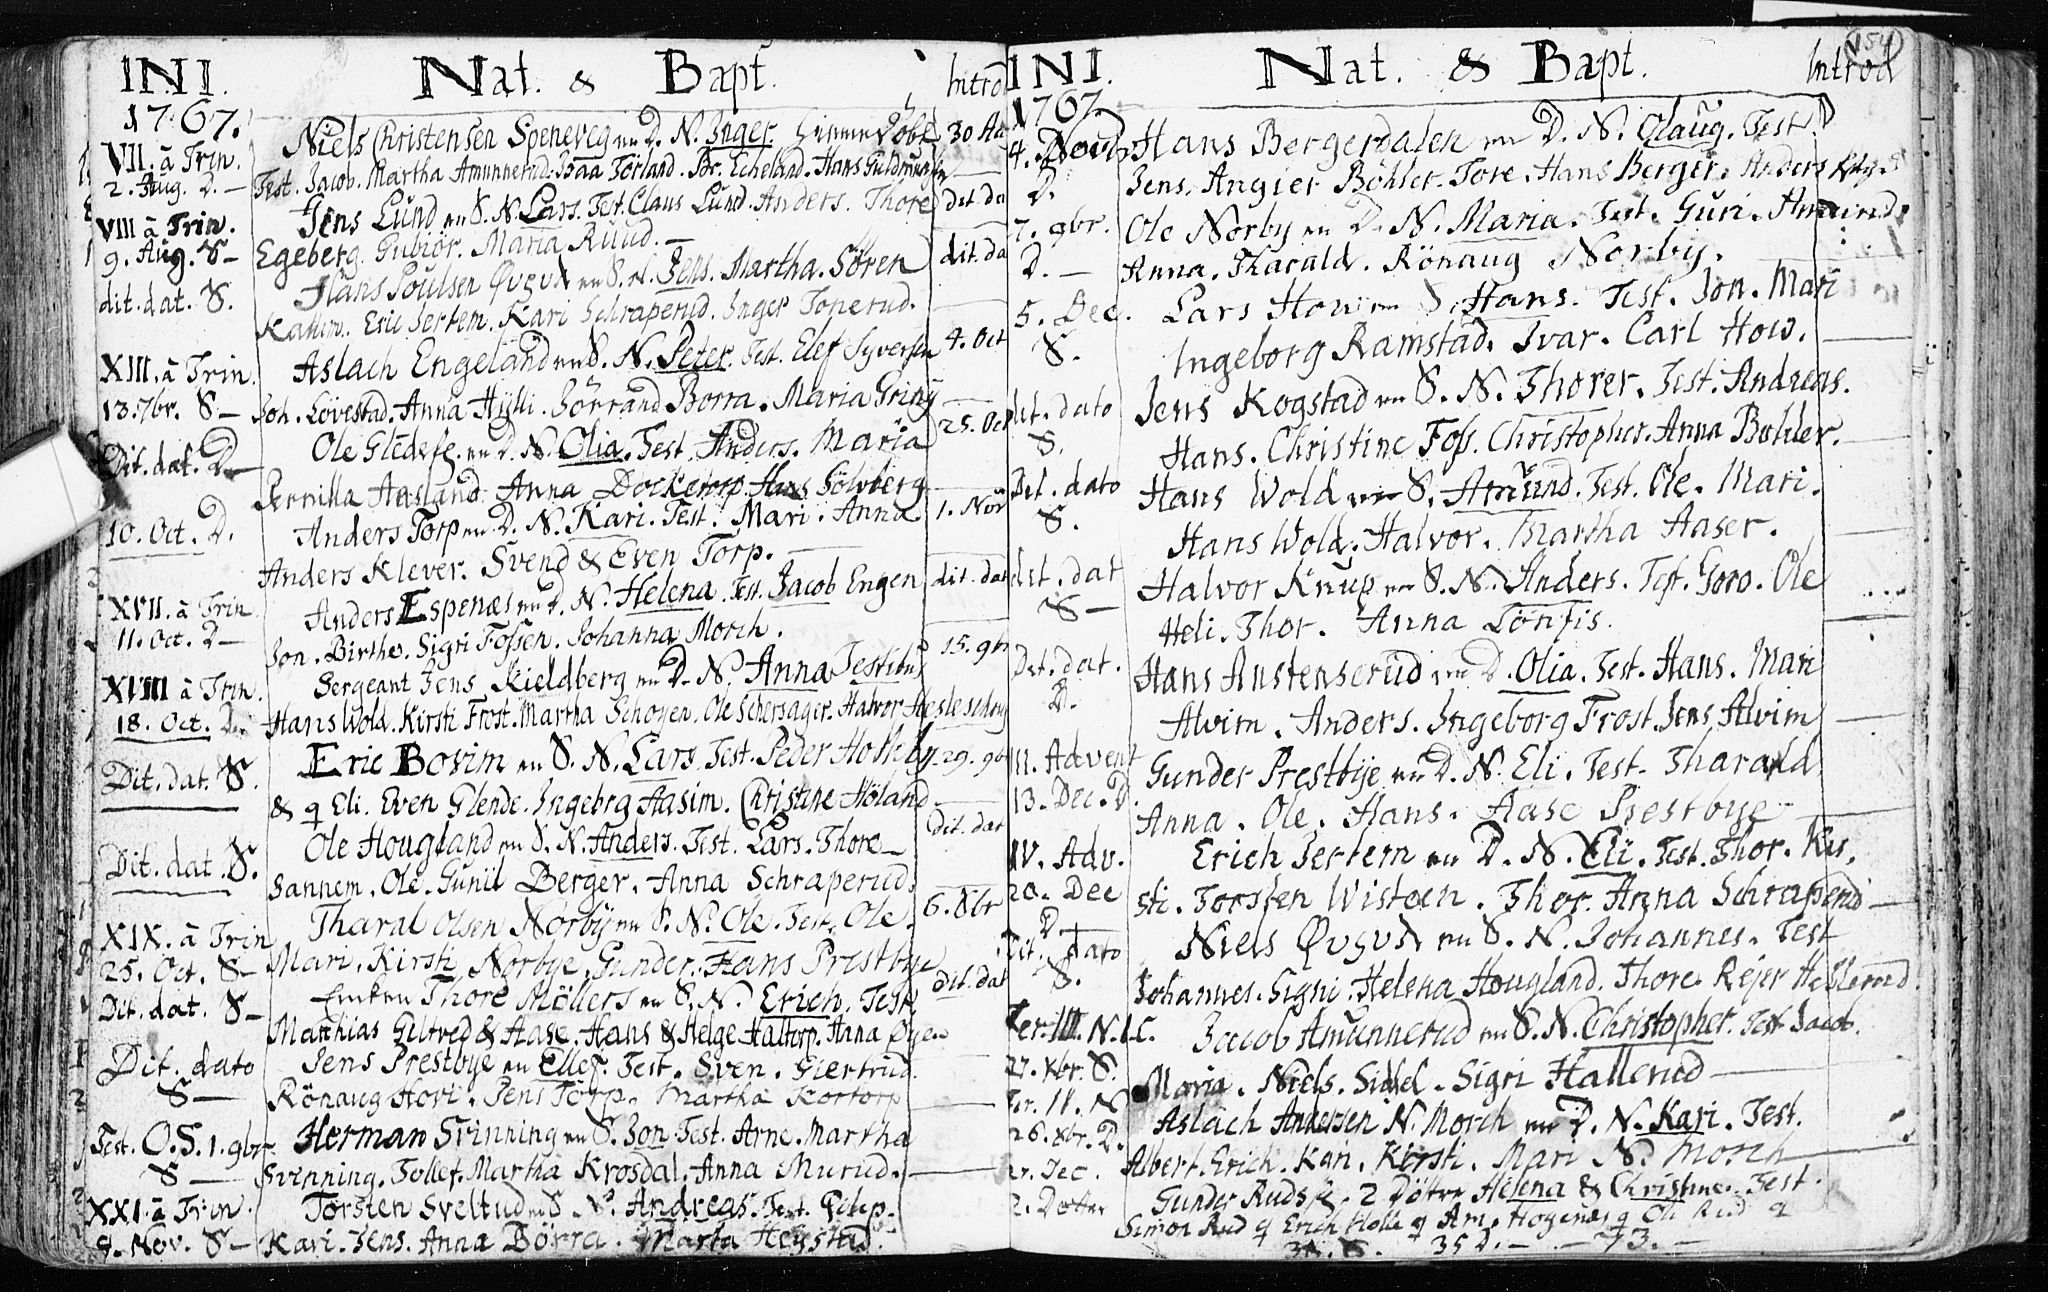 INI. Nat. & Bapt. Introd
1767.
Niels Christensen Speneveg en D. N. Inger. Hiemme Döbt 30 Au
VII. à Trin.
2. Aug. D. — Test. Jacob. Martha Amunnerud. Torland. Echeland. Hans
Jens Lund en S. N. Lars. Test. Claus Lund. Anders. Thore dit. da
VIII à Trin.
9. Aug. S — Egeberg. Gubiör. Maria Ruud. —
dit. dat. S. Hans Poulsen en S. N. Jens. Martha. Sören dit. da
Kari Schraperud. Inger Tonerud.
Aslach Engeland en S. N. Peter. Test. Elef Syversen 4. Oct
XIII. à Trin.
13. 7br. S — Joh. Lövestad. Anna Hylli. Borra. Maria Griny
Ole en D. N. Olia. Test. Anders. Maria 25. Oct
Dit. dat. D —
Pernilla Aasland. Anna Hans Sölvberg
Anders Torp en D. N. Kari. Test. Mari. Anna 1. Nov
10. Oct. D.
Anders Klever. Svend & Even Torp. —
Anders Espenæs en D. N. Helena. Test. Jacob Engen dit. dat
XVII. à Trin
11. Oct. D — Jon. Birthe. Sigri Fossen. Johanna Morch.
Sergeant Jens Kieldberg en D. N. Anna Testibus 15. 9br
XVIII à Trin.
18. Oct. D. Hans Wold. Kirsti Frost. Martha Schoyen. Ole Schersager. Halvor
Eric Bovim en S. N. Lars. Test. Peder 29. 9br
Dit. dat. S.
& q Eli. Even Glende. Ingebrg Aasim. Christine Höland
Ole Hougland en S. N. Anders. Test. Lars. Thore — Dit. dat
Dit. dat. S.
Sannem. Ole. Gunil Berger. Anna Schraperud.
Tharal Olsen Norby en S. N. Ole. Test. Ole. 6. Xbr
XIX. à Trin
25. Oct. S — Mari. Kirsti Norbye. Gunder. Hans Prestbye
Dit. dat. S — Enken Thore Möllers en S. N. Erich. Test. dit. dat
Matthias & Aase. Hans & Helge Haltorp. Anna
Jens Prestbye en Ellef. Test. Sven. Giertrud.
Dit. dato
S — Rönaug Hovi. Jens Torp. Martha Kortorp
Fest. O. S. 1. 9br. Herman Svinning en S. Jon. Test. Arne. Martha
S — Svinning. Tollef. Martha Krosdal. Anna Murud. —
XXI. à Trin. Torsten Sveltud en S. N. Andreas. Test.
9. Nov. S — Kari. Jens. Anna Börra. Marta Heystad.
INI. Nat. & Bapt. Introd
1767.
4. Hans Bergerdalen en D. N. Olaug. Test.
D. Jens. Angier Böhler. Tore. Hans Berger. Anders
7. 9br. Ole Norby en D. N. Maria. Test. Guri. Amund.
D. — Anna. Tharald. Rönaug Norby.
5. Dec. Lars How en S. Hans. Test. Jon. Mari
S. Ingeborg Ramstad. Ivar. Carl How. —
dit. dato Jens Kogstad en S. N. Thorer. Test. Andreas.
S. Hans. Christine Foss. Christopher. Anna Bohler.
Dit. dato Hans Wold en S. Amund. Test. Ole. Mari.
S. Hans Wold. Halvor. Martha Aaser.
dit. dat Halvor Knup en S. N. Anders. Test. Goro. Ole
S — Heli. Thor. Anna
Dit. dat. Hans Anstenserud en D. Olia. Test. Hans. Mari
D. Alvim. Anders. Ingeborg Frost. Jens Alvim
III. Advent Gunder Prestbye en D. N. Eli. Test. Tharald
13. Dec. D. Anna. Ole. Hans. Aase Prestbye —
IV. Adv. Erich Jertem en D. N. Eli. Test. Thor. Kir
20. Dec sti. Torsten Wisteen. Thor. Anna Schraperud —
D —
Dit. dato Niels en S. N. Johannes. Test
S. Johannes. Signi. Helena Hougland. Thore. Rejer
Fer. III. N. I. C. Jacob Amunnerud en S. N. Christopher. Test. Jacob.
27. Xbr. S. Maria. Niels. Siddel. Sigri Hallerud —
Fer. II. N Aslach Andersen N. Morch en D. N. Kari. Test.
26. Xbr. D. Albert. Erich. Kari. Kirsti. Mari N. Morch
Dec. Gunder 2 Döttre Helena & Christine. Test.
2. Dotter Simon Rud q Erich Holle q Am. Hogenæs q Ole Rud q
S. 35 D. — — 73. —